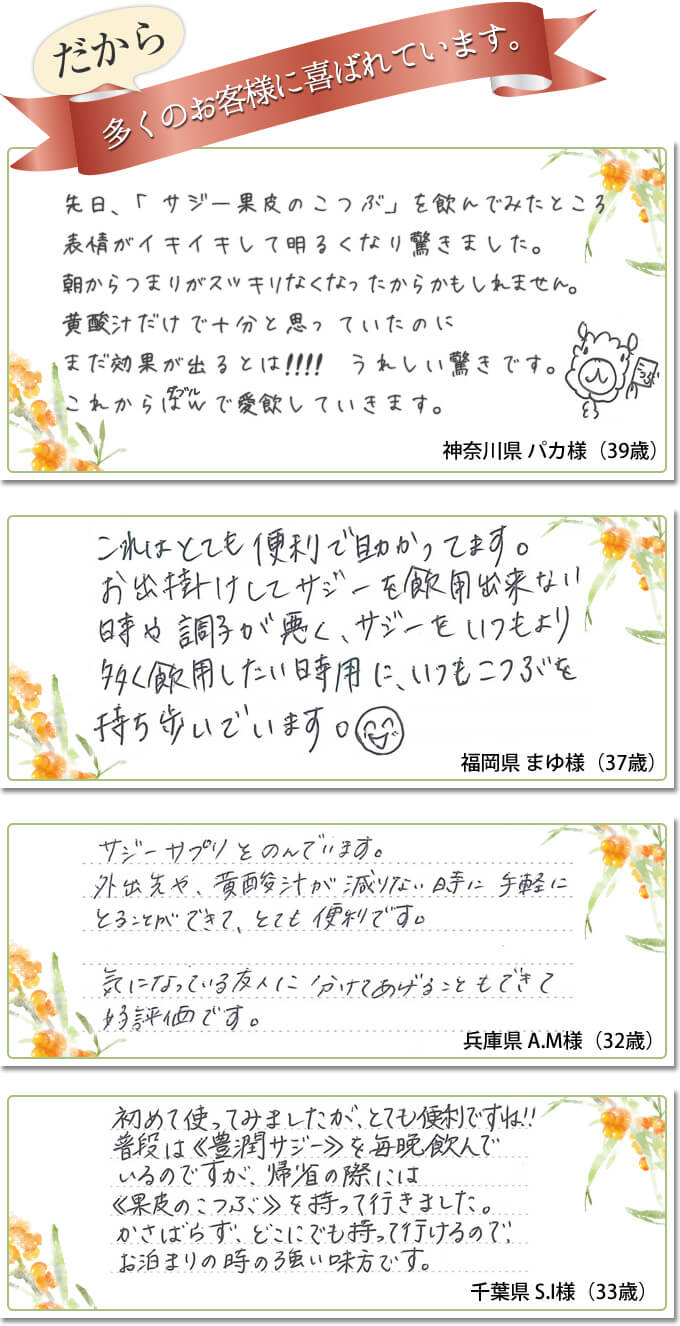 だから
多くのお客様に喜ばれています。
先日、「サジー果皮のこつぶ」を飲んでみたところ
表情がイキイキして明るくなり驚きました。
朝からつまりがスッキリなくなったからかもしれません。
黄酸汁だけで十分と思っていたのに
まだ効果が出るとは!!!! うれしい驚きです。
これからはW(ダブル)で愛飲していきます。
こつぶ
神奈川県 パカ様（39歳）
これはとても便利で助かってます。
お出掛けしてサジーを飲用出来ない
時や調子が悪く、サジーをいつもより
多く飲用したい時用に、いつもこつぶを
持ち歩いでいます。
福岡県 まゆ様（37歳）
サジーサプリとのんでいます。
外出先や、黄酸汁が減りない時に手軽に
とることができて、とても便利です。
気になっている友人に分けてあげることもできて
好評価です。
兵庫県 A.M様（32歳）
初めて使ってみましたが、とても便利ですね!!
普段は《豊潤サジー》を毎晩飲んで
いるのですが、帰省の際には
《果皮のこつぶ》を持って行きました。
かさばらず、どこにでも持って行けるので、
お泊まりの時の強い味方です。
千葉県 S.I様（33歳）